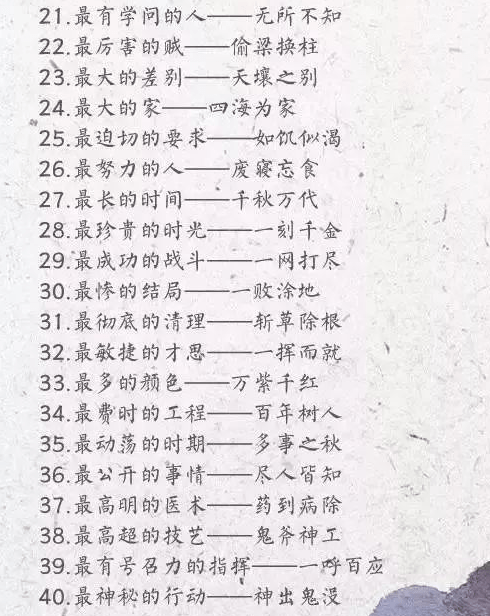 21.最有学问的人——无所不知
22.最厉害的贼——偷梁换柱
23.最大的差别——天壤之别
24.最大的家——四海为家
25.最迫切的要求——如饥似渴
26.最努力的人——废寝忘食
27.最长的时间——千秋万代
28.最珍贵的时光——一刻千金
29.最成功的战斗——一网打尽
30.最惨的结局——一败涂地
31.最彻底的清理——斩草除根
32.最敏捷的才思——一挥而就
33.最多的颜色——万紫千红
34.最费时的工程——百年树人
35.最动荡的时期——多事之秋
36.最公开的事情——尽人皆知
37.最高明的医术——药到病除
38.最高超的技艺——鬼斧神工
39.最有号召力的指挥——一呼百应
40.最神秘的行动——神出鬼没